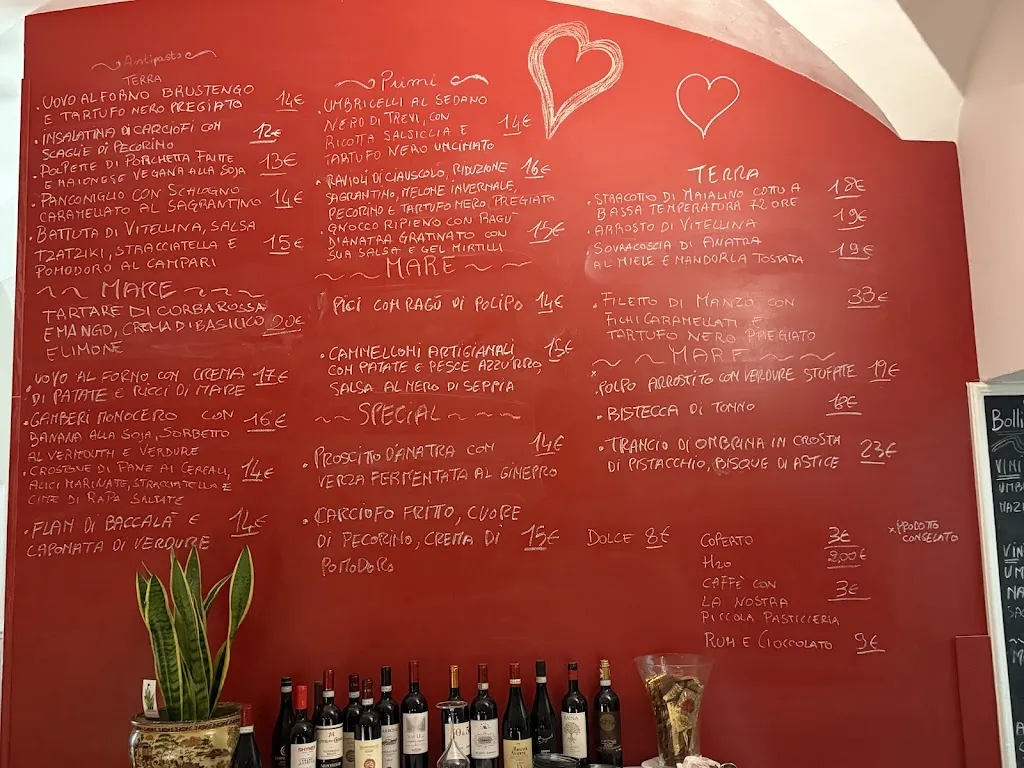 Antipasto
TERRA
• UOVO AL FORNO BRUSTENGO
E TARTUFO NERO PREGIATO 14€
• INSALATINA DI CARCIOFI CON
SCAGLIE DI PECORINO 12€
• POLPETTE DI PORCHETTA FRITTE
E MAIONESE VEGANA ALLA SOJA 13€
• PANCONIGLIO CON SCALOGNO
CARAMELLATO AL SAGRANTINO 14€
• BATTUTA DI VITELLINA, SALSA
TZATZIKI, STRACCIATELLA E 15€
POMODORO AL CAMPARI
MARE
TARTARE DI CORBAROSSA
E MANGO, CREMA DI BASILICO 20€
E LIMONE
• UOVO AL FORNO CON CREMA 17€
DI PATATE E RICCI DI MARE
• GAMBERI MONOCERO CON 16€
BANANA ALLA SOJA, SORBETTO
AL VERMOUTH E VERDURE
• CROSTONE DI PANE AI CEREALI, 14€
ALICI MARINATE, STRACCIATELLA E
CIME DI RAPA SALTATE
• FLAN DI BACCALÀ E 14€
CAPONATA DI VERDURE
Primi
• UMBRICELLI AL SEDANO
NERO DI TREVI, CON 14€
RICOTTA SALSICCIA E
TARTUFO NERO UNCINATO
• RAVIOLI DI CIAUSCOLO, RIDUZIONE 16€
SAGRANTINO, MELONE INVERNALE,
PECORINO E TARTUFO NERO PREGIATO
• GNOCCO RIPIENO CON RAGÙ 15€
D'ANATRA GRATINATO CON
SUA SALSA E GEL MIRTILLI
MARE
PICI CON RAGÙ DI POLIPO 14€
• CANNELLONI ARTIGIANALI 15€
CON PATATE E PESCE AZZURRO,
SALSA AL NERO DI SEPPIA
SPECIAL
• PROSCITTO D'ANATRA CON 14€
VERZA FERMENTATA AL GINEPRO
• CARCIOFO FRITTO, CUORE
DI PECORINO, CREMA DI 15€
POMODORO
TERRA
• STRACOTTO DI MAIALINO COTTO A 18€
BASSA TEMPERATURA 72 ORE
• ARROSTO DI VITELLINA 19€
• SOVRACOSCIA DI ANATRA 19€
AL MIELE E MANDORLA TOSTATA
• FILETTO DI MANZO, CON 33€
FICHI CARAMELLATI E
TARTUFO NERO PREGIATO
MARE
x POLPO ARROSTITO CON VERDURE STUFATE 19€
• BISTECCA DI TONNO 18€
• TRANCIO DI OMBRINA IN CROSTA 23€
DI PISTACCHIO, BISQUE DI ASTICE
DOLCE 8€
COPERTO 3€
H2O 2,00€
CAFFÈ CON 3€
LA NOSTRA
PICCOLA PASTICCERIA
RUM E CIOCCOLATO 9€
x PRODOTTO
CONGELATO
Bolli
VINI
UMB